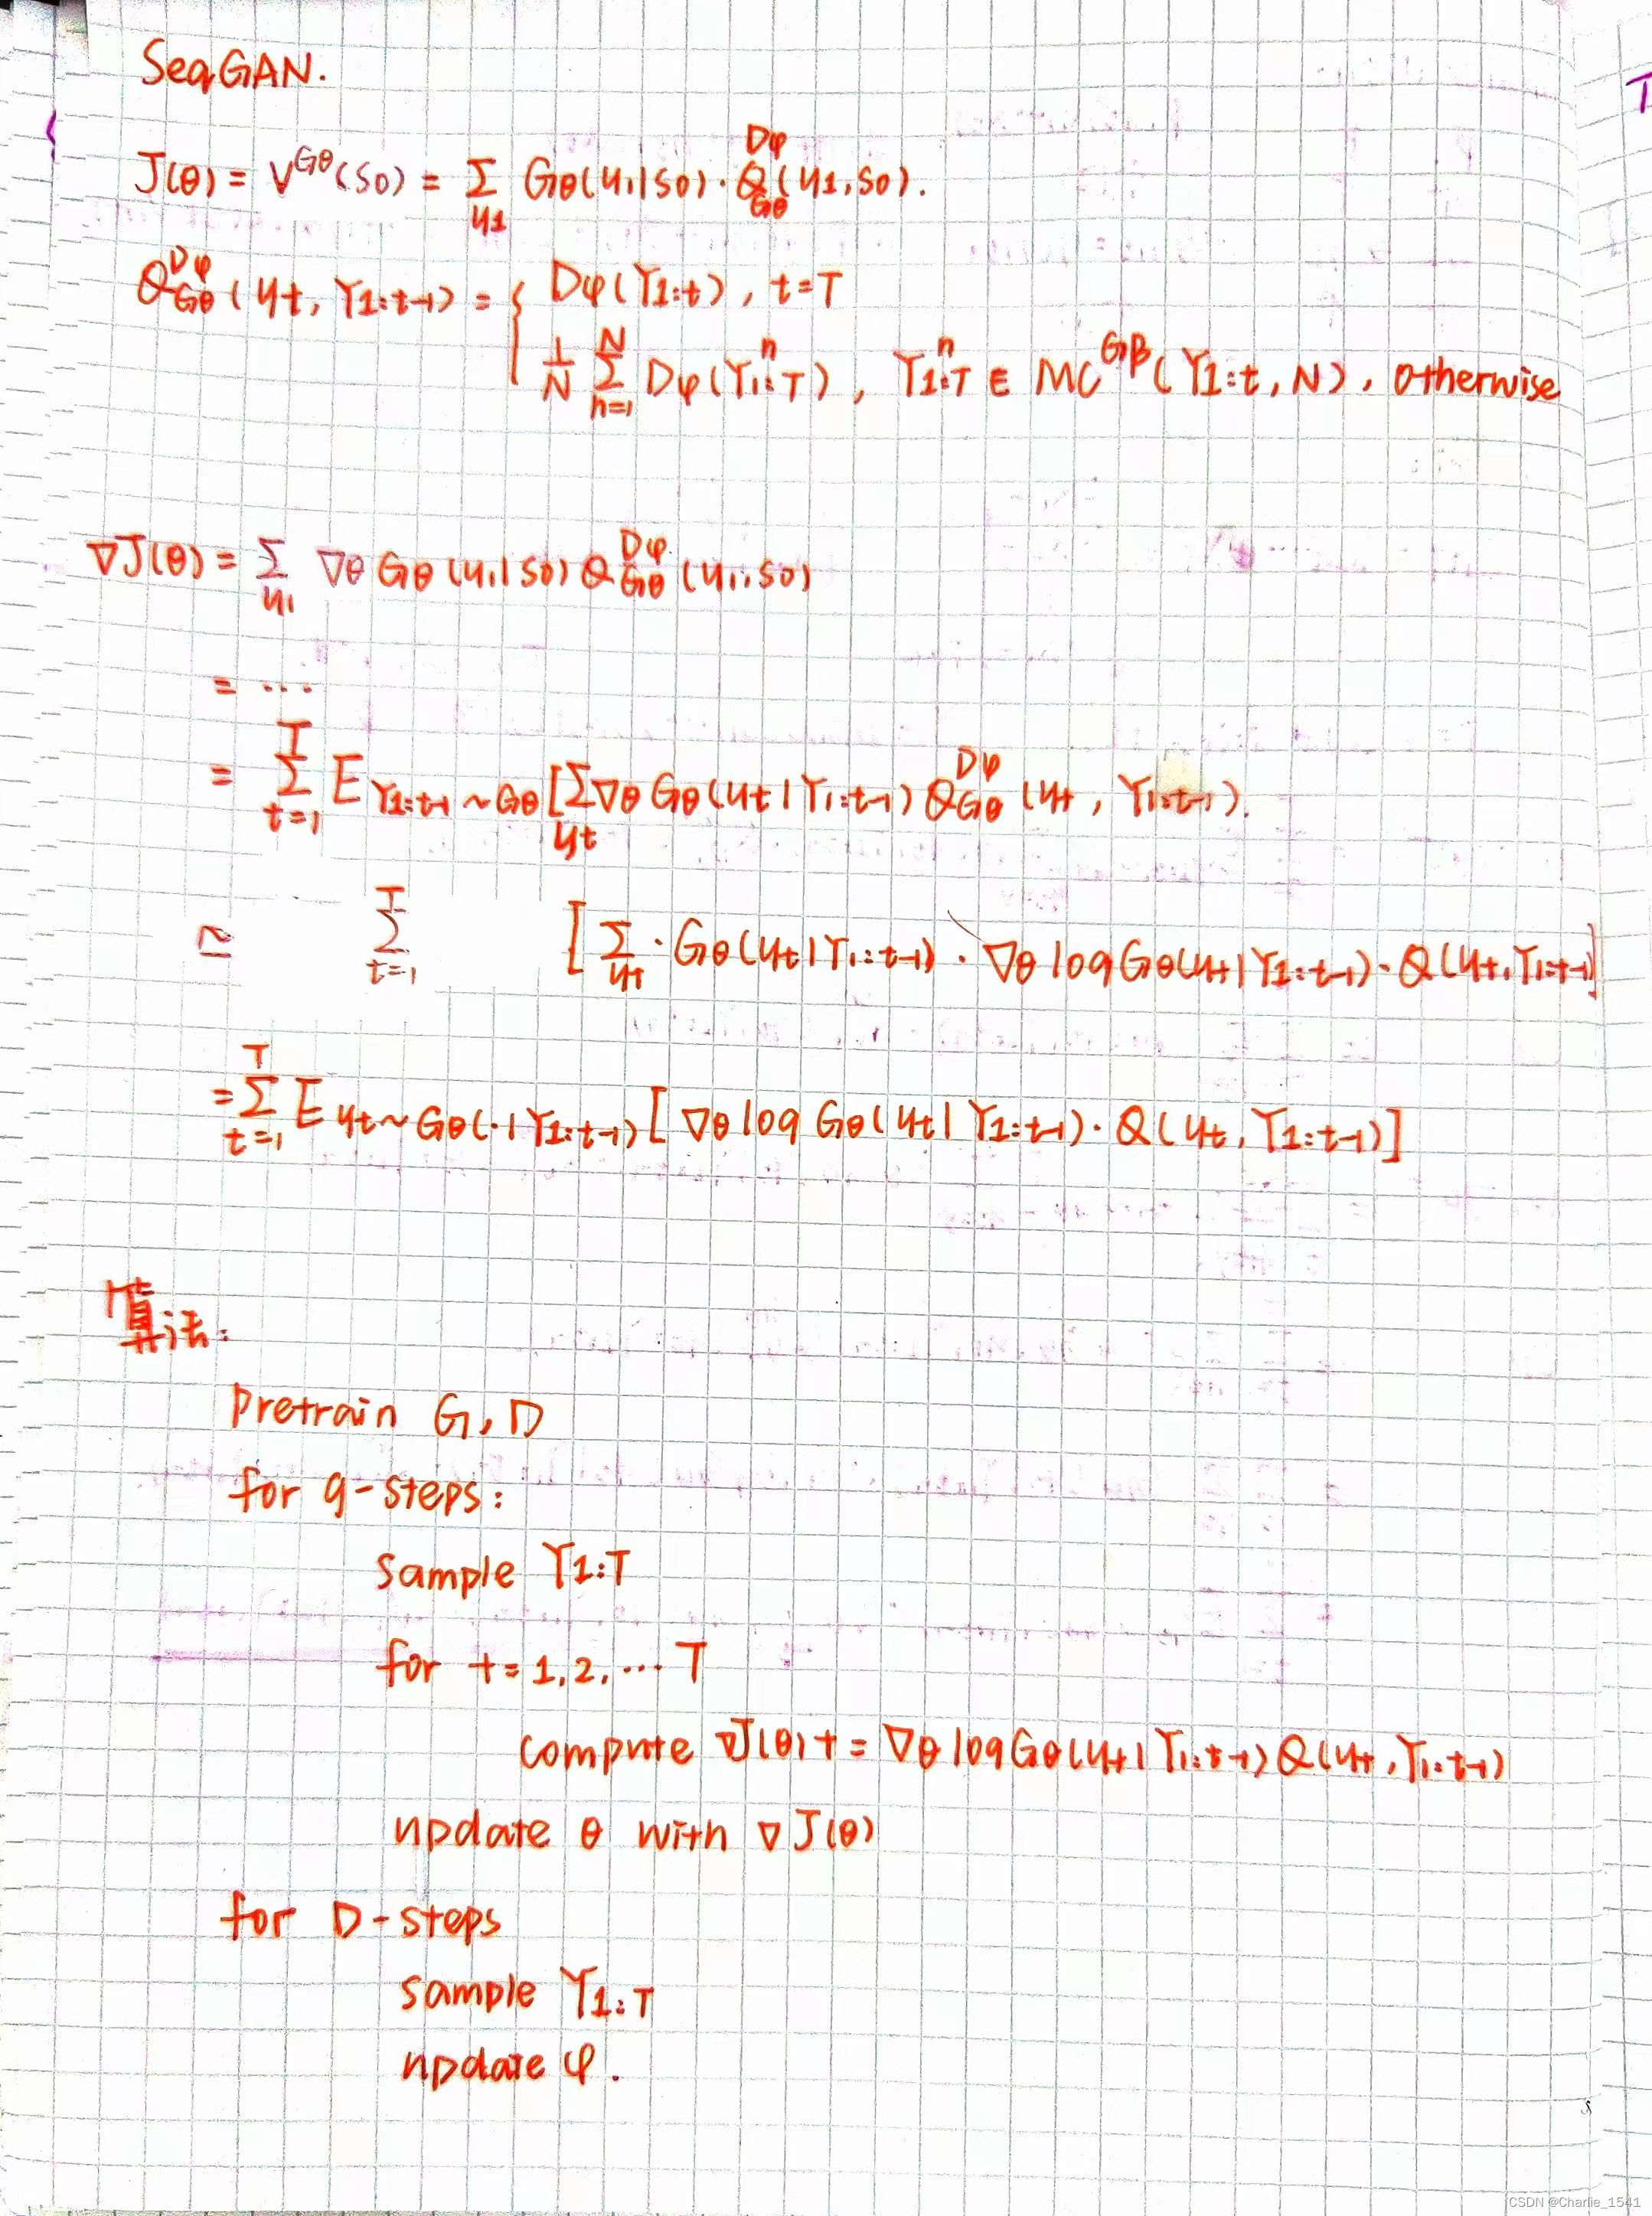 SeqGAN.
J(θ) = V^{Gθ}(S0) = Σ_{y1} Gθ(y1|S0) · Q^{Dφ}_{Gθ}(y1, S0).
Q^{Dφ}_{Gθ}(yt, Y1:t-1) = { Dφ(Y1:t), t=T
1/N Σ_{n=1}^{N} Dφ(Y^n_{1:T}), Y^n_{1:T} ∈ MC^{Gβ}(Y1:t, N), otherwise
∇J(θ) = Σ_{y1} ∇θ Gθ(y1|S0) Q^{Dφ}_{Gθ}(y1, S0)
= ...
= Σ_{t=1}^{T} E_{Y1:t-1 ~ Gθ} [Σ_{yt} ∇θ Gθ(yt|Y1:t-1) Q^{Dφ}_{Gθ}(yt, Y1:t-1).
≃ Σ_{t=1}^{T} [Σ_{yt} · Gθ(yt|Y1:t-1) · ∇θ log Gθ(yt|Y1:t-1) · Q(yt, Y1:t-1)]
= Σ_{t=1}^{T} E_{yt ~ Gθ(·|Y1:t-1)} [∇θ log Gθ(yt|Y1:t-1) · Q(yt, Y1:t-1)]
算法:
pretrain G, D
for g-steps:
sample Y1:T
for t = 1, 2, ... T
compute ∇J(θ)t = ∇θ log Gθ(yt|Y1:t-1) Q(yt, Y1:t-1)
update θ with ∇J(θ)
for D-steps
sample Y1:T
update φ.
CSDN @Charlie_1541